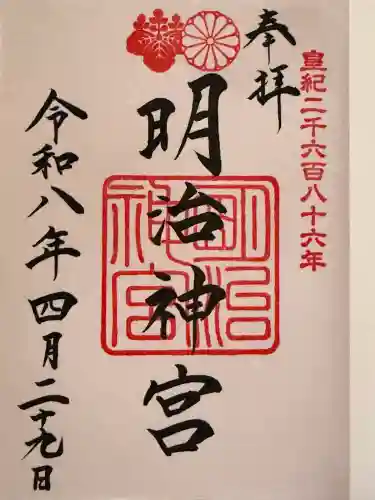 皇紀二千六百八十六年
奉拝
明治神宮
明治神宮
令和八年四月二十九日